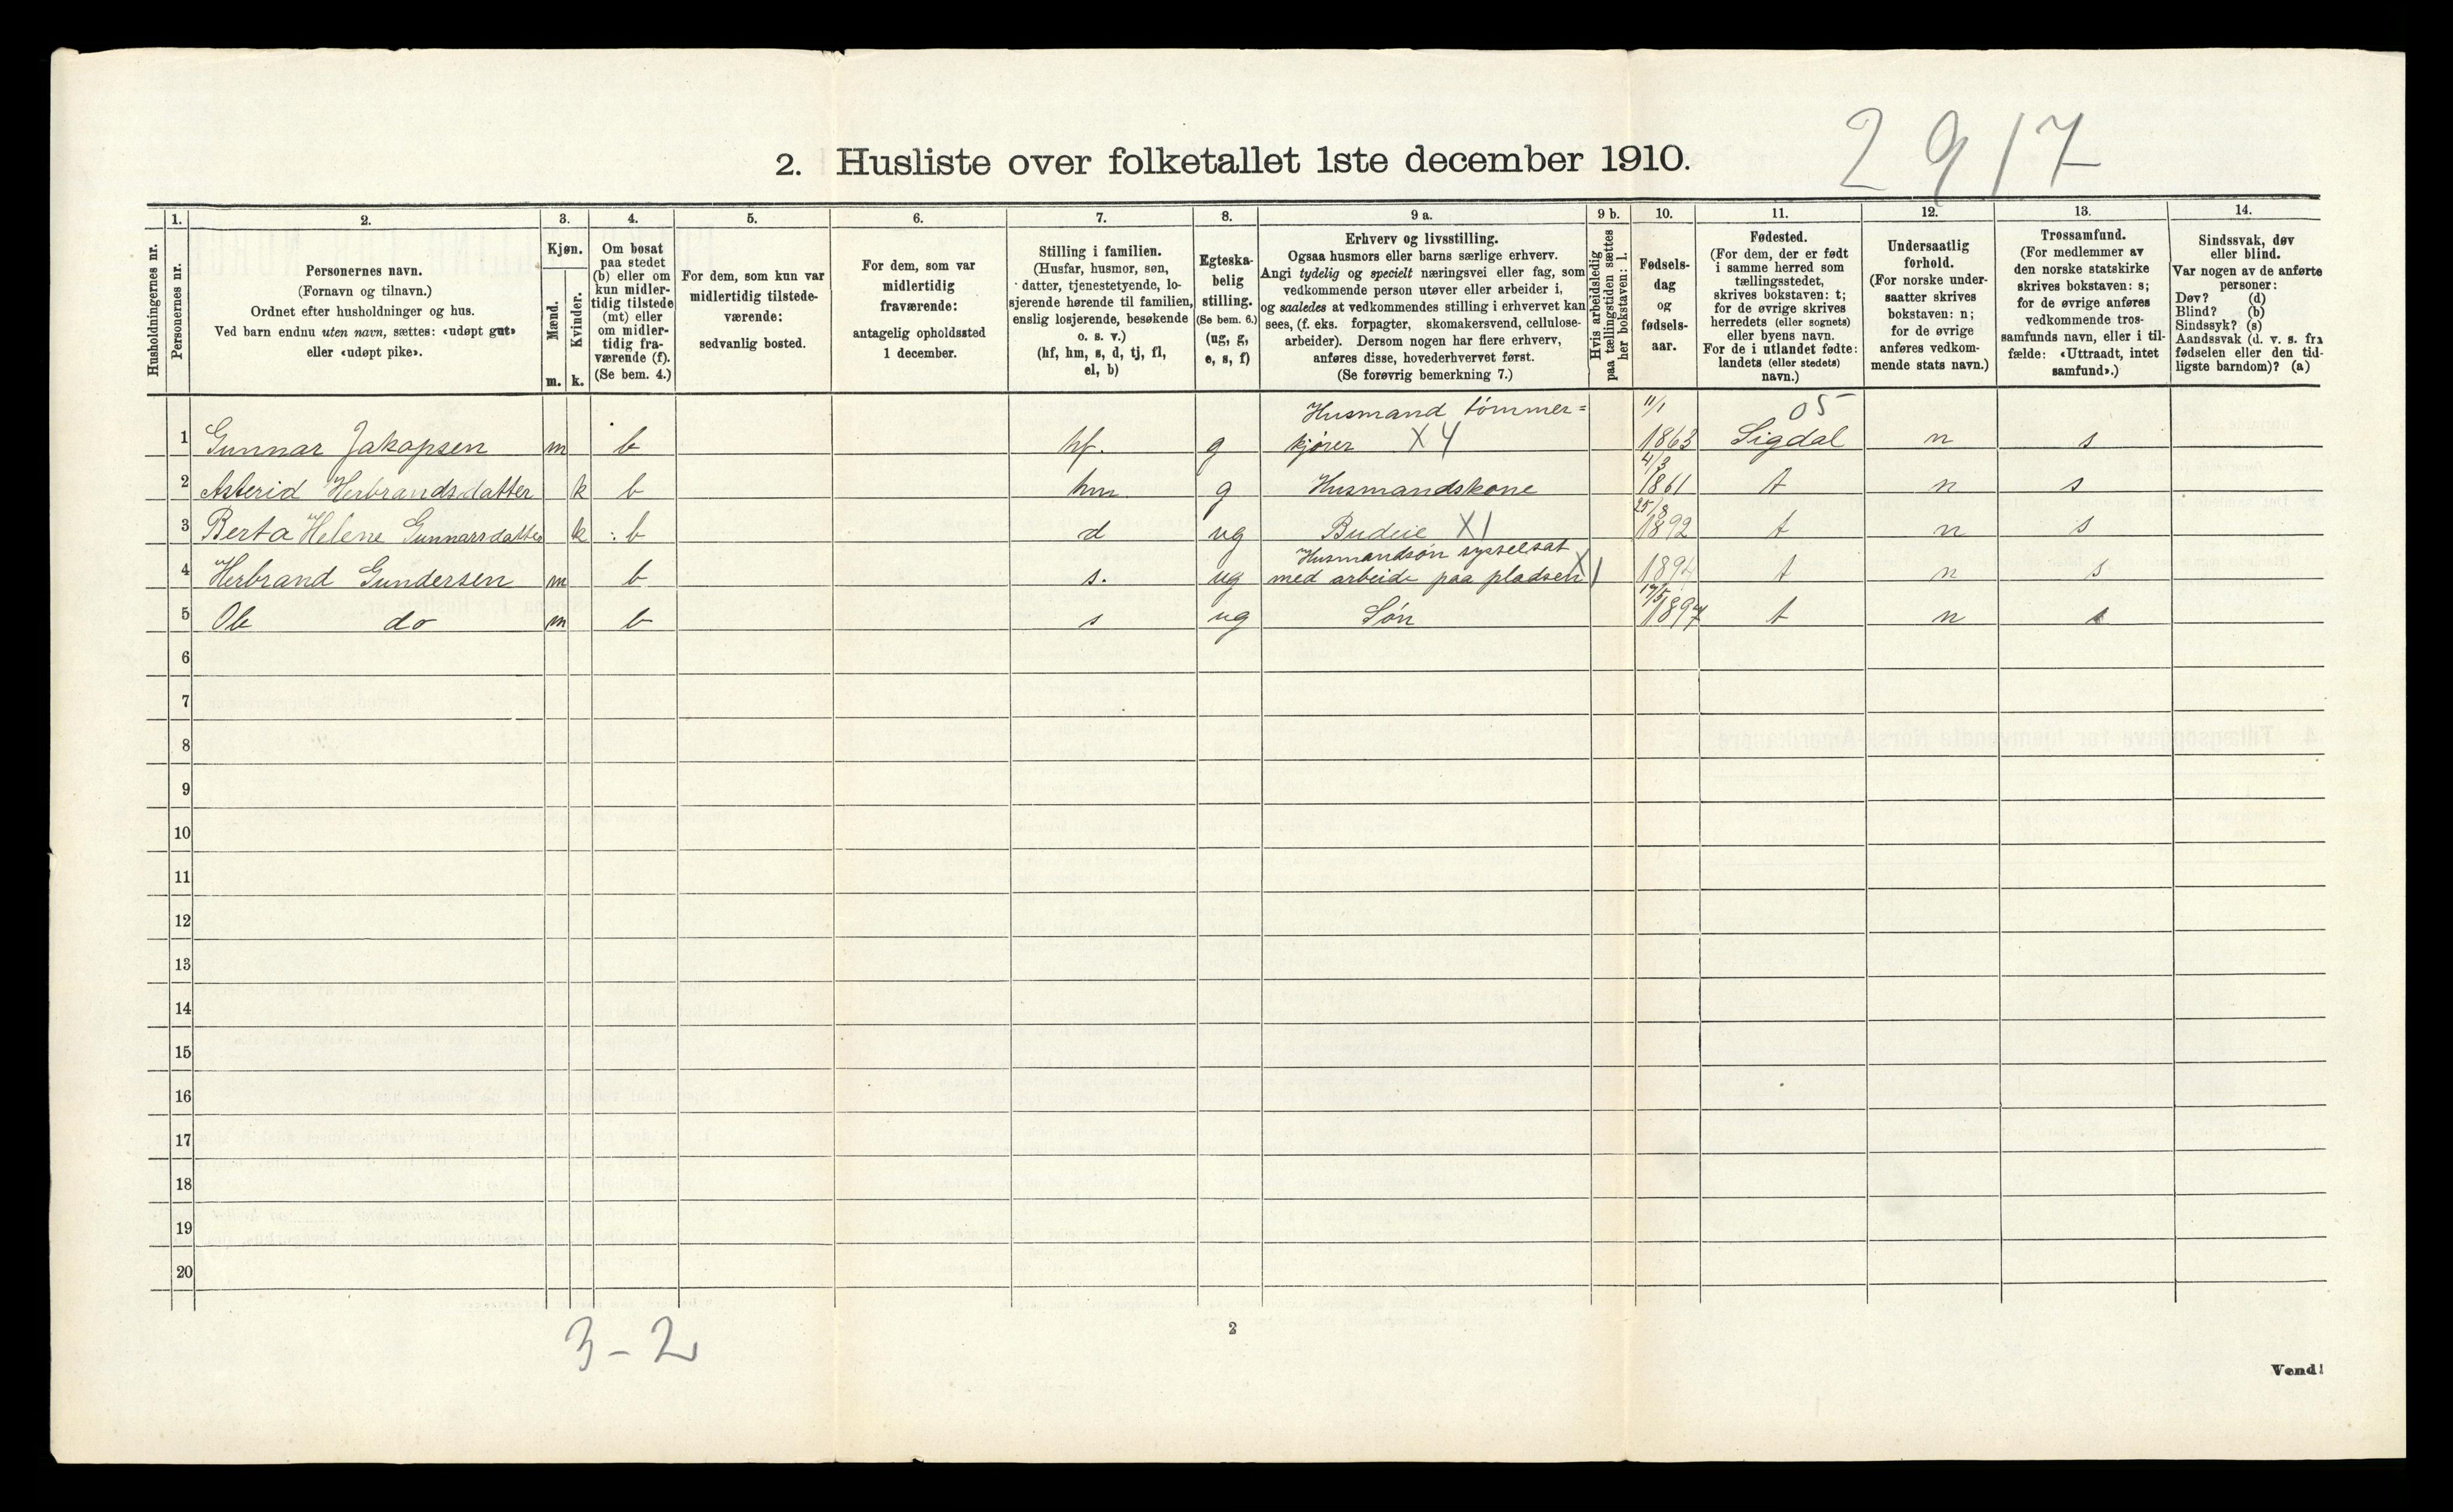 2 9 17
2. Husliste over folketallet 1ste december 1910.
Husholdningernes nr.
1.
Personernes nr.
2.
Personernes navn.
(Fornavn og tilnavn.)
Ordnet efter husholdninger og hus.
Ved barn endnu uten navn, sættes: «udøpt gut»
eller «udøpt pike».
3.
Kjøn.
Mænd.
m.
Kvinder.
k.
4.
Om bosat
paa stedet
(b) eller om
kun midler-
tidig tilstede
(mt) eller
om midler-
tidig fra-
værende (f).
(Se bem. 4.)
5.
For dem, som kun var
midlertidig tilstede-
værende:
sedvanlig bosted.
6.
For dem, som var
midlertidig
fraværende:
antagelig opholdssted
1 december.
7.
Stilling i familien.
(Husfar, husmor, søn,
datter, tjenestetyende, lo-
sjerende hørende til familien,
enslig losjerende, besøkende
o. s. v.)
(hf, hm, s, d, tj, fl,
el, b)
8.
Egteska-
belig
stilling.
(Se bem. 6.)
(ug, g,
e, s, f)
9 a.
Erhverv og livsstilling.
Ogsaa husmors eller barns særlige erhverv.
Angi tydelig og specielt næringsvei eller fag, som
vedkommende person utøver eller arbeider i,
og saaledes at vedkommendes stilling i erhvervet kan
sees, (f. eks. forpagter, skomakersvend, cellulose-
arbeider). Dersom nogen har flere erhverv,
anføres disse, hovederhvervet først.
(Se forøvrig bemerkning 7.)
9 b.
Hvis arbeidsledig
paa tællingstiden sættes
her bokstaven: l.
10.
Fødsels-
dag
og
fødsels-
aar.
11.
Fødested.
(For dem, der er født
i samme herred som
tællingsstedet,
skrives bokstaven: t;
for de øvrige skrives
herredets (eller sognets)
eller byens navn.
For de i utlandet fødte:
landets (eller stedets)
navn.)
12.
Undersaatlig
forhold.
(For norske under-
saatter skrives
bokstaven: n;
for de øvrige
anføres vedkom-
mende stats navn.)
13.
Trossamfund.
(For medlemmer av
den norske statskirke
skrives bokstaven: s;
for de øvrige anføres
vedkommende tros-
samfunds navn, eller i til-
fælde: «Uttraadt, intet
samfund».)
14.
Sindssvak, døv
eller blind.
Var nogen av de anførte
personer:
Døv? (d)
Blind? (b)
Sindssyk? (s)
Aandssvak (d. v. s. fra
fødselen eller den tid-
ligste barndom)? (a)
Husmand tømmer= 11/1 05
1 Gunnar Jakopsen m b hf. g kjører X4 1863 Sigdal n s
4/3
2 Asterid Herbrandsdatter k b hm g Husmandskone 1861 t n s
25/8
3 Berta Helene Gunnarsdatter k b d ug Budeie X1 1892 t n s
Husmandsøn sysselsat
4 Herbrand Gundersen m b s. ug med arbeide paa pladsen X1 1894 t n s
17/5
5 Ole do m b s ug Søn 1897 t n s
6
7
8
9
10
11
12
13
14
15
16
17
18
19
20
3-2
2
Vend!